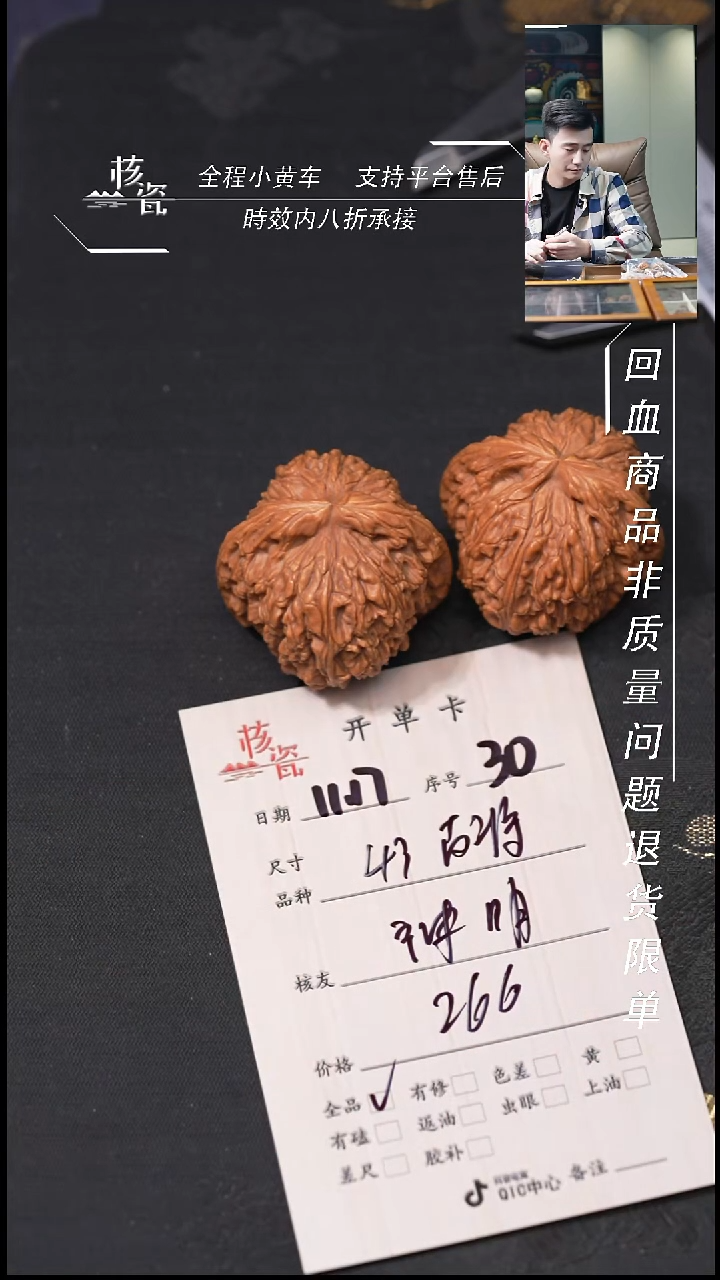 核瓷
全程小黄车 支持平台售后
時效内八折承接
回血商品非质量问题退货限单
核瓷
开单卡
日期 11.17 序号 30
尺寸 43
品种
核友
266
价格
全品 ✓ 有修 色差 黄
有磕 返油 虫眼 上油
差尺 胶补
QIC中心 备注